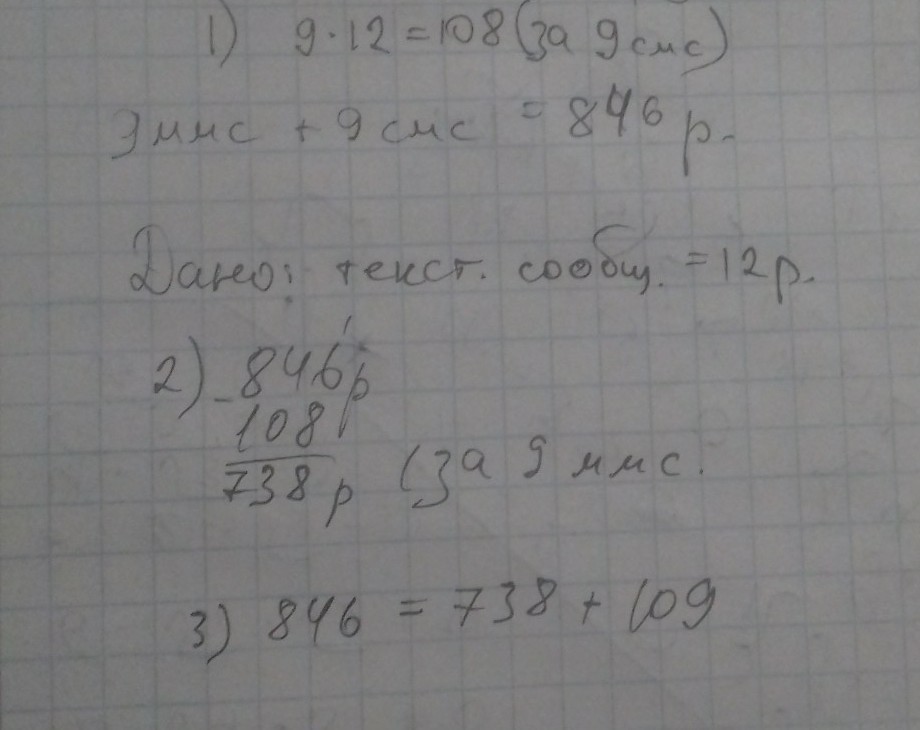 1) 9·12=108 (за 9 смс)
9 ммс + 9 смс = 846 р.
Дано: текст. сообщ. = 12 р.
2) -846р
108
738р (за 9 ммс.
3) 846 = 738 + 109